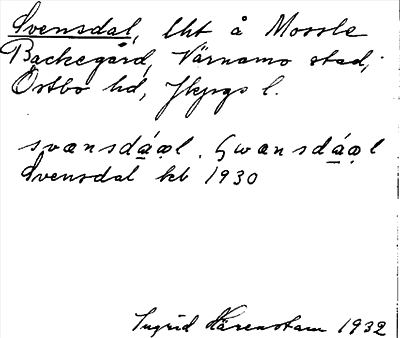 Svensdal, lht å Mossle
Backegård, Värnamo stad,
Östbo hd, Jkpgs l.
svænsdáœl. Swænsdáœl
Svensdal kb 1930
Ingrid Härenstam 1932